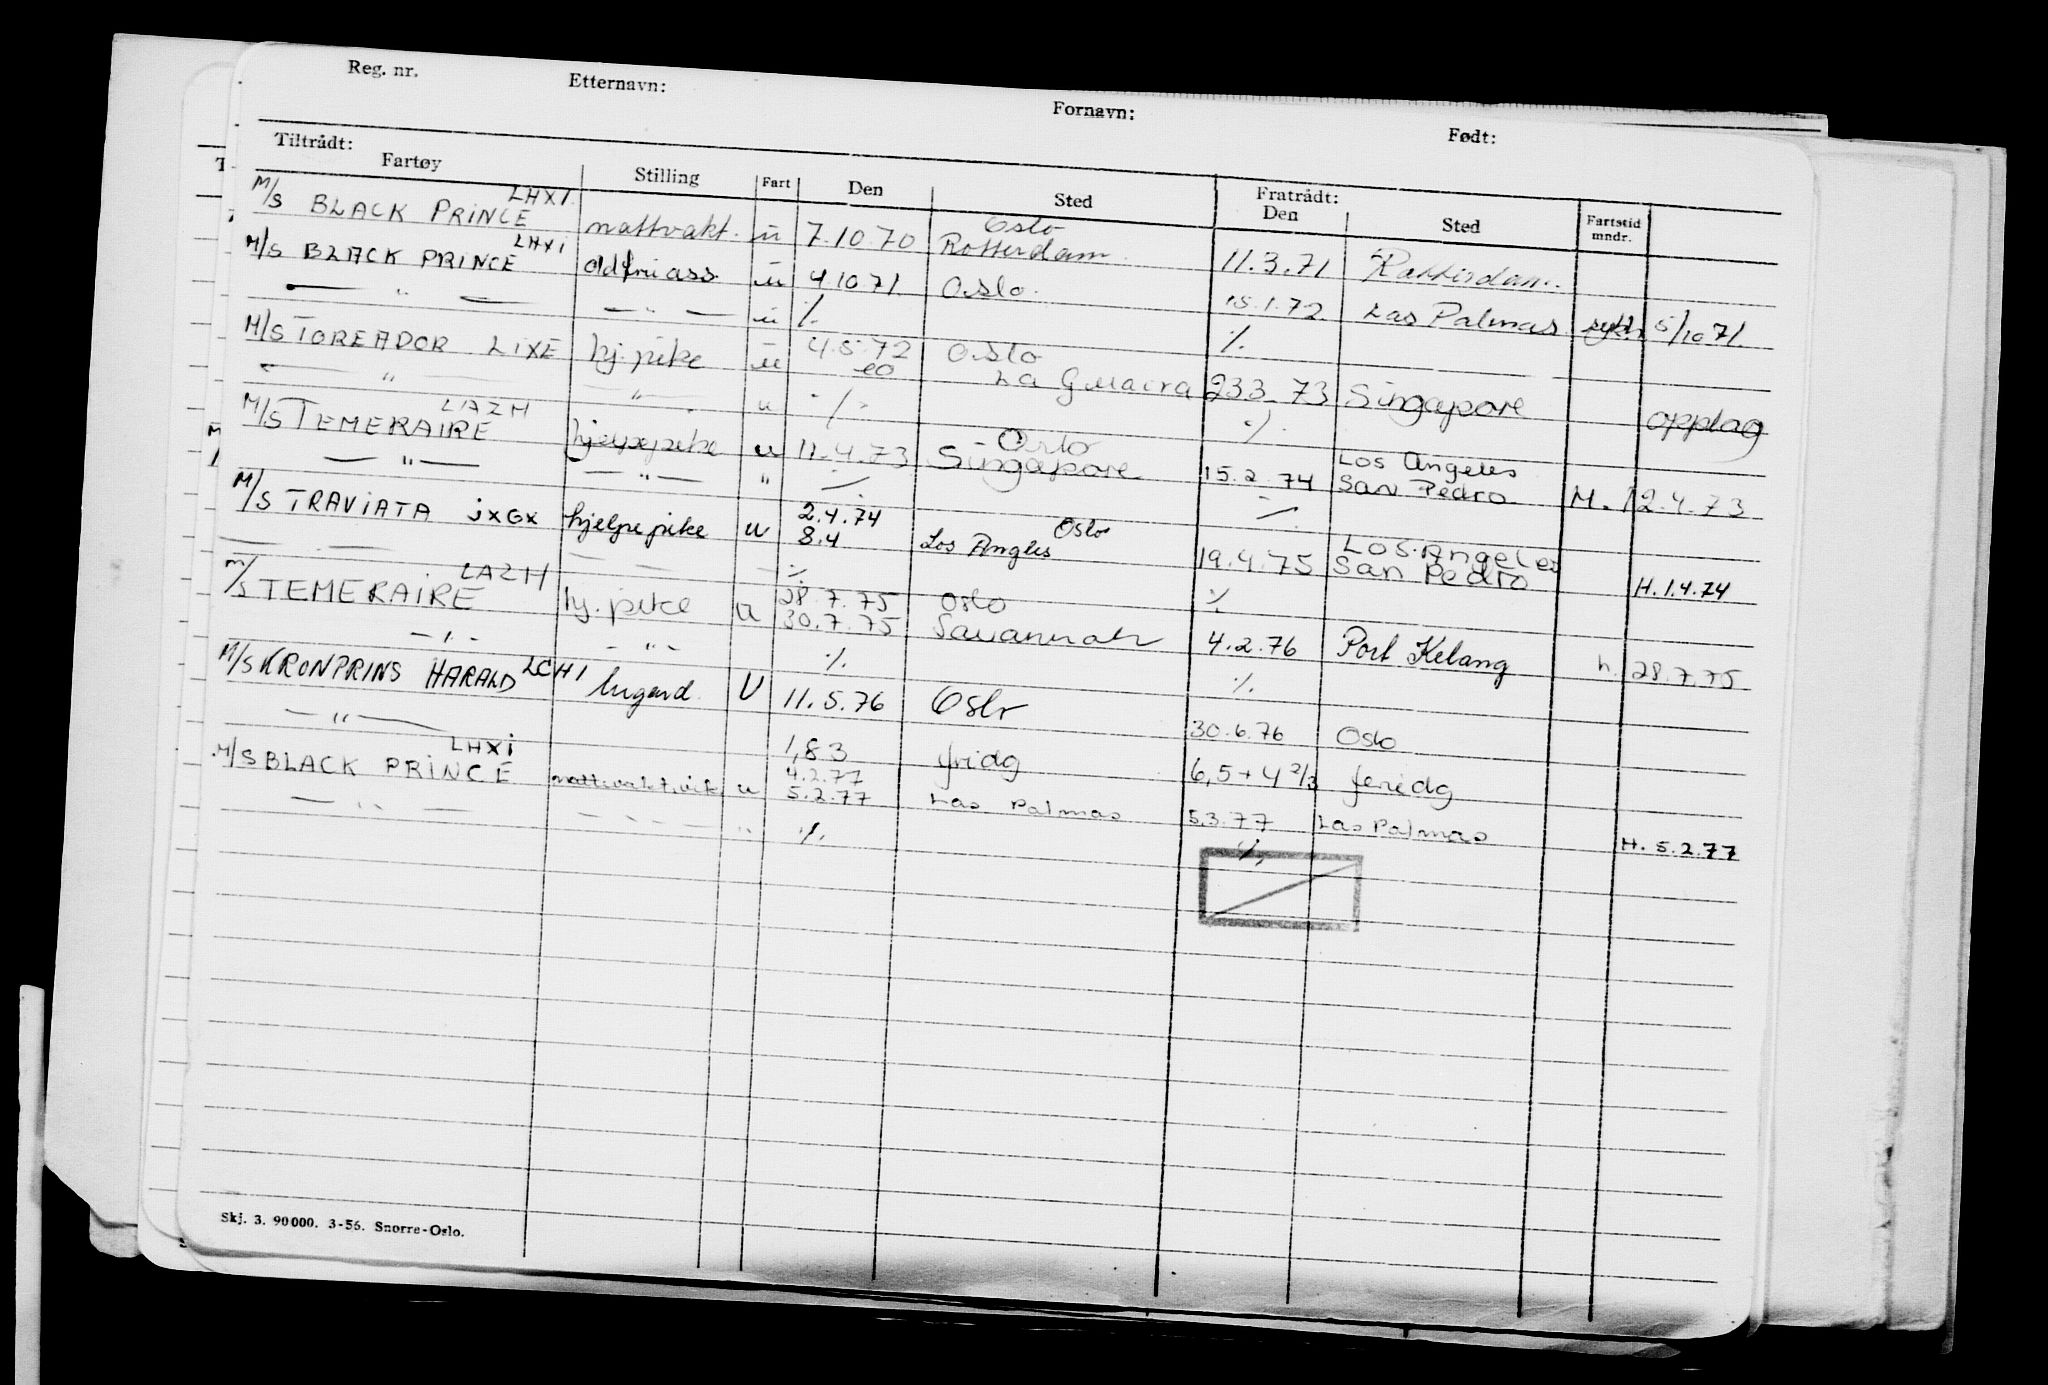 Reg. nr. Etternavn: Fornavn: Født:
Tiltrådt: Fratrådt:
Fartøy Stilling Fart Den Sted Den Sted Fartstid mndr.
M/S BLACK PRINCE LHXI nattvakt. u 7.10.70 Oslo Rotterdam 11.3.71 Rotterdam
M/S BLACK PRINCE LHXI oldfruass u 4.10.71 Oslo 15.1.72 Las Palmas 5/10 71
— " — — " — u ./. ./.
M/S TOREADOR LIXE hj. pike u 4.5.72 Oslo La Guaira 233.73 Singapore opplag
— " — — " — u ./. ./.
M/S TEMERAIRE LAZH hjelpepike u 11.4.73 Oslo Singapore 15.2.74 Los Angeles San Pedro M. 12.4.73
— " — — " — "
M/S TRAVIATA JXGX hjelpepike u 2.4.74 8.4 Los Angles Oslo 19.4.75 Los Angeles San Pedro H. 1.4.74
— — — — ./. ./.
M/S TEMERAIRE LAZH hj. pike u 28.7.75 30.7.75 Oslo Savannah 4.2.76 Port Kelang h. 28.7.75
— " — - " - ./. ./.
M/S KRONPRINS HARALD LCHI lugard. U 11.5.76 Oslo 30.6.76 Oslo
— " — 1,83 fridg 6,5 + 4 2/3 feridg
M/S BLACK PRINCE LHXI natt.vakt.vik u 4.2.77 5.2.77 Las Palmas 5.3.77 Las Palmas H. 5.2.77
— " — — " — " ./. ./.
Skj. 3. 90000. 3-56. Snorre-Oslo.